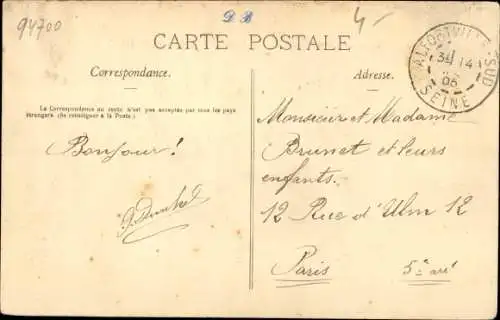 94700
D B
4-
CARTE POSTALE
Correspondance.
Adresse.
La Correspondance au recto n'est pas acceptée par tous les pays
étrangers. (Se renseigner à la Poste.)
ALFORTVILLE-SUD
14
06
SEINE
Bonjour!
Monsieur et Madame
Brunet et leurs
enfants.
12 Rue d'Ulm 12
Paris 5e arr